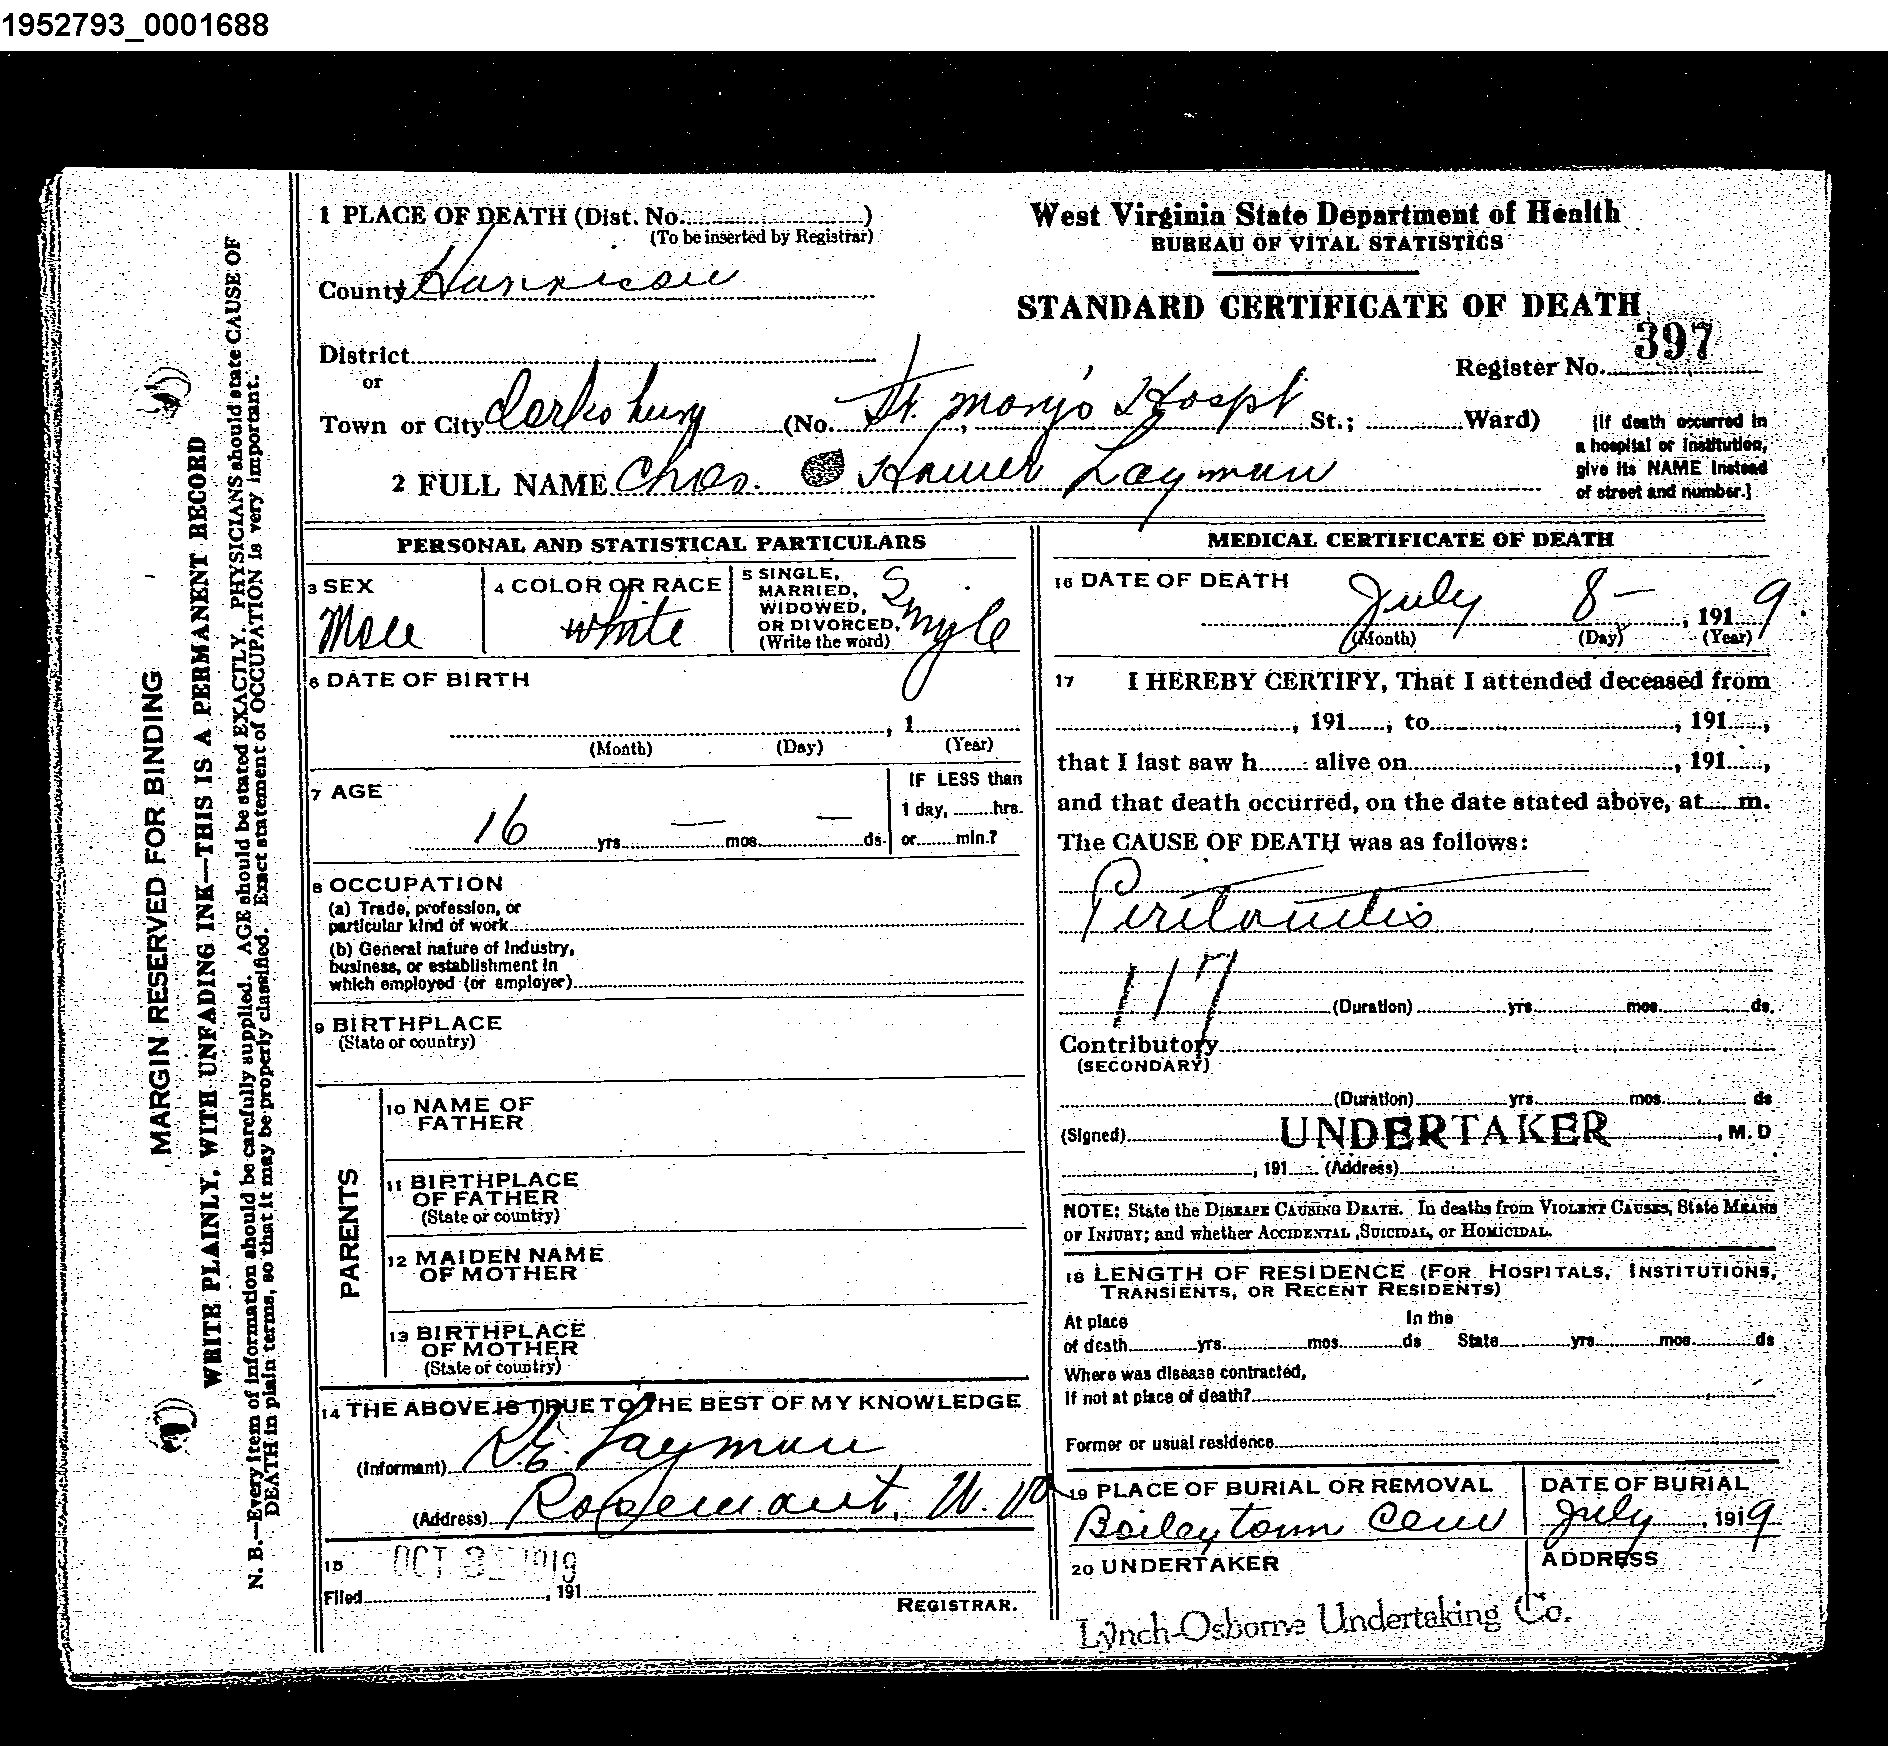 1952793_0001688
MARGIN RESERVED FOR BINDING
WRITE PLAINLY, WITH UNFADING INK—THIS IS A PERMANENT RECORD
N. B.—Every item of information should be carefully supplied. AGE should be stated EXACTLY. PHYSICIANS should state CAUSE OF
DEATH in plain terms, so that it may be properly classified. Exact statement of OCCUPATION is very important.
1 PLACE OF DEATH (Dist. No. )
(To be inserted by Registrar)
County Harrison
District
or
Town or City Clarksburg (No. St. Mary's Hospt St.; Ward)
2 FULL NAME Chas. Homer Layman
West Virginia State Department of Health
BUREAU OF VITAL STATISTICS
STANDARD CERTIFICATE OF DEATH
Register No. 397
[If death occurred in
a hospital or institution,
give its NAME instead
of street and number.]
PERSONAL AND STATISTICAL PARTICULARS
3 SEX
Male
4 COLOR OR RACE
White
5 SINGLE,
MARRIED,
WIDOWED,
OR DIVORCED,
(Write the word)
Single
6 DATE OF BIRTH
, 1
(Month) (Day) (Year)
7 AGE
16 yrs. — mos. — ds.
IF LESS than
1 day, hrs.
or min.?
8 OCCUPATION
(a) Trade, profession, or
particular kind of work
(b) General nature of industry,
business, or establishment in
which employed (or employer)
9 BIRTHPLACE
(State or country)
PARENTS
10 NAME OF
FATHER
11 BIRTHPLACE
OF FATHER
(State or country)
12 MAIDEN NAME
OF MOTHER
13 BIRTHPLACE
OF MOTHER
(State or country)
14 THE ABOVE IS TRUE TO THE BEST OF MY KNOWLEDGE
(Informant) Layman
(Address) Rosemont, W. Va
15 OCT 3 1919
Filed , 191
REGISTRAR.
MEDICAL CERTIFICATE OF DEATH
16 DATE OF DEATH
July 8- , 1919.
(Month) (Day) (Year)
17 I HEREBY CERTIFY, That I attended deceased from
, 191 , to , 191 ,
that I last saw h alive on , 191 ,
and that death occurred, on the date stated above, at m.
The CAUSE OF DEATH was as follows:
Peritonitis
117
(Duration) yrs. mos. ds.
Contributory
(SECONDARY)
(Duration) yrs. mos. ds
(Signed) UNDERTAKER , M. D
, 191 (Address)
NOTE: State the DISEASE CAUSING DEATH. In deaths from VIOLENT CAUSES, State MEANS
OF INJURY; and whether ACCIDENTAL, SUICIDAL, or HOMICIDAL.
18 LENGTH OF RESIDENCE (FOR HOSPITALS, INSTITUTIONS,
TRANSIENTS, OR RECENT RESIDENTS)
At place In the
of death yrs. mos. ds State yrs. mos. ds
Where was disease contracted,
If not at place of death?
Former or usual residence
19 PLACE OF BURIAL OR REMOVAL
Baileytown Cem
DATE OF BURIAL
July , 1919
20 UNDERTAKER
ADDRESS
Lynch-Osborne Undertaking Co.